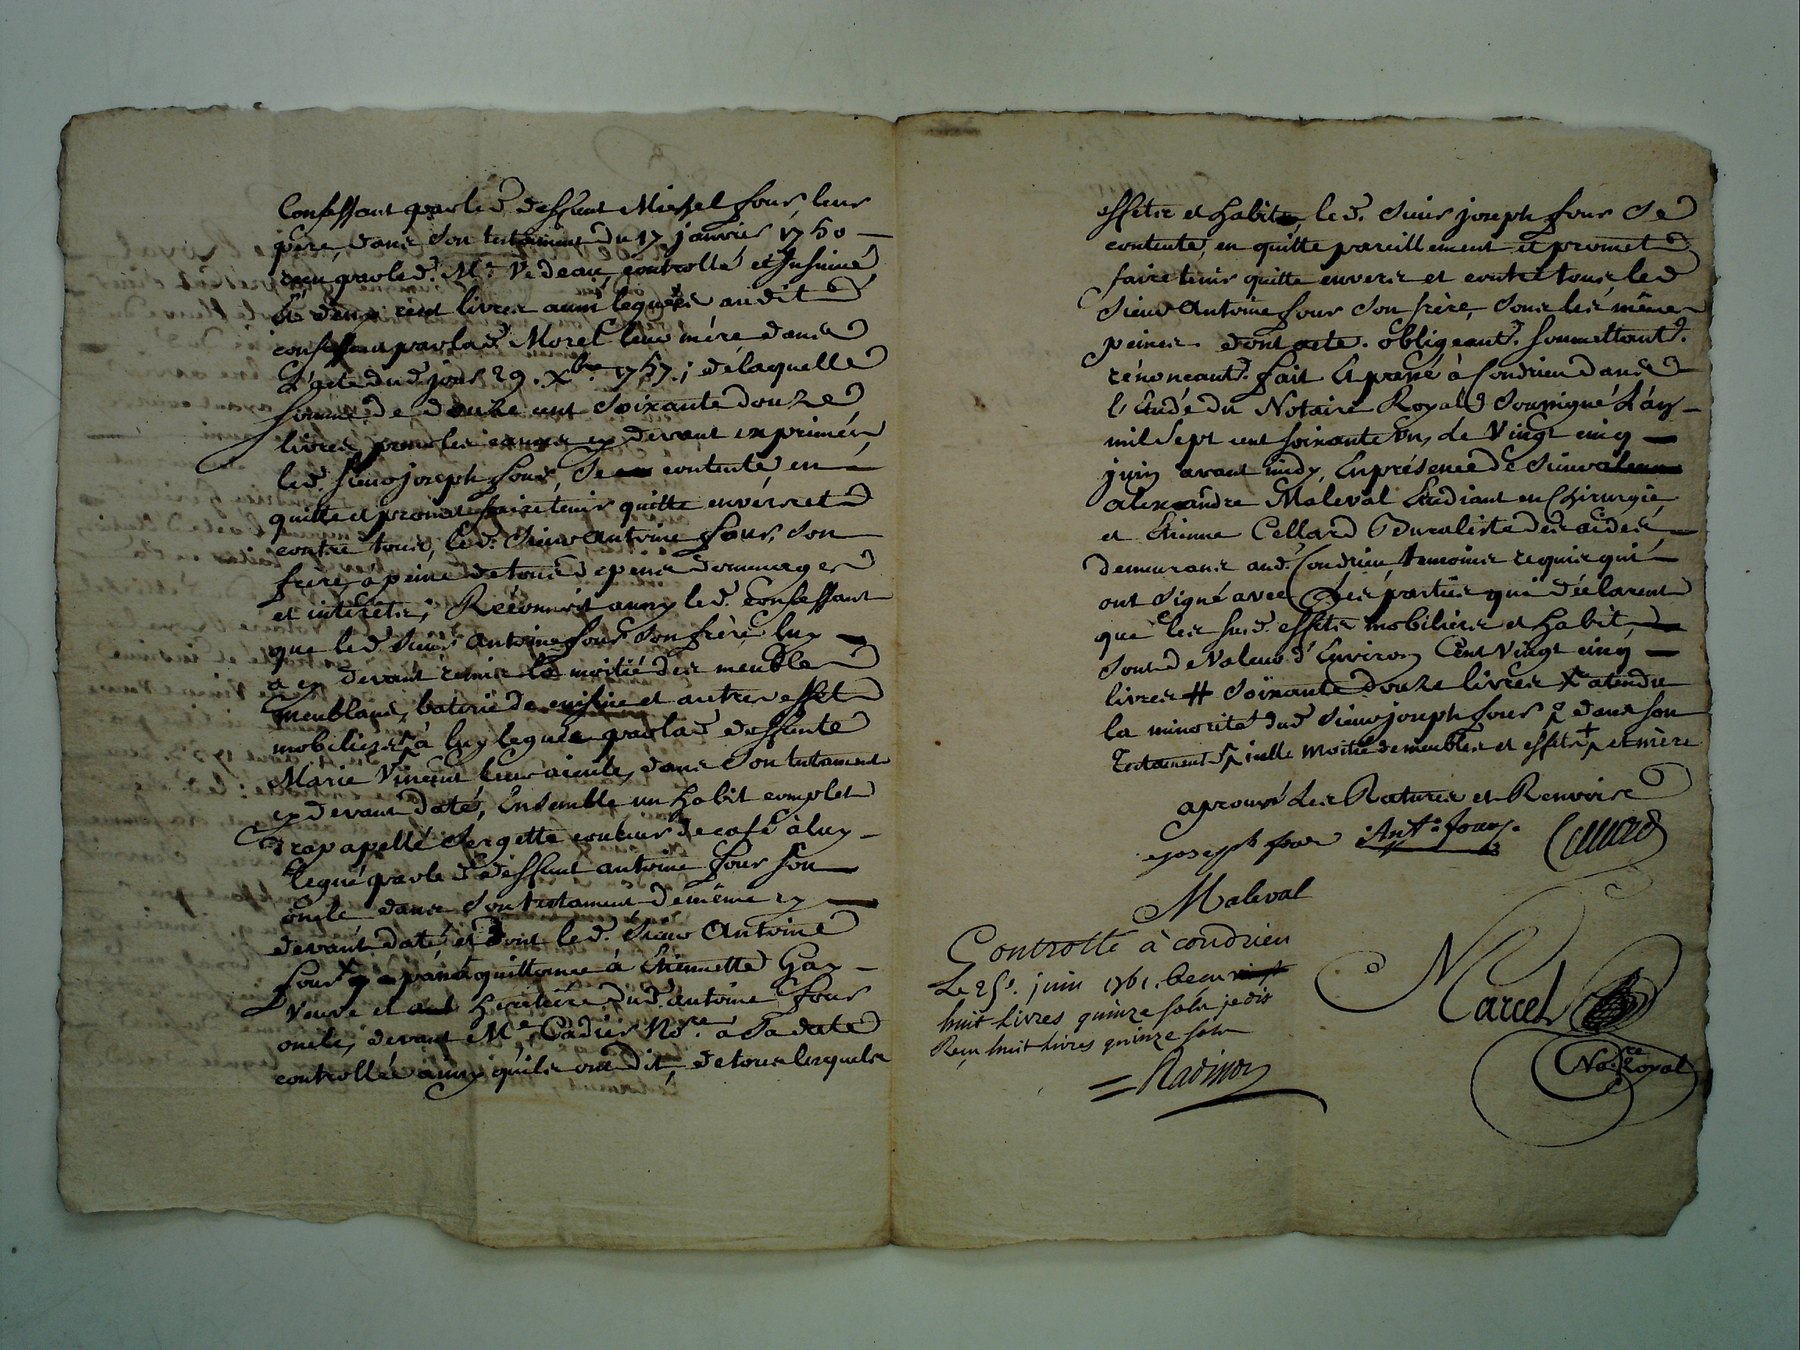 Confessant par led. deffunt Michel four, leur
père, dans son testament du 17 janvier 1750
reçu par led. Me. Vedeau, controllé et Insinué,
Et deux cent livres aussi leguées audit
confessant par lad. Morel leur mère dans
L'acte dud. jour 29. xbre. 1757; de laquelle
somme de douze cent soixante douze
livres, pour les causes cy devant exprimées
led. sieur joseph four, se contente, en
quitte et promet faire tenir quitte envers et
contre tous, led. sieur antoine four, son
frère, a peine de tous depens dommages
et interêts; Réconnoit aussy led. confessant
que led. sieur antoine four son frère luy
a cy devant remis la moitié des meubles
meublans, baterie de cuisine et autres effets
mobiliers à luy legués par lad. deffunte
Marie Vincent leur aieule, dans son testament
cy devant daté, Ensemble un habit complet
drap apellé sergette couleur de café à luy
legué par led. deffunt antoine four son
oncle dans son testament de même cy
devant daté, et dont led. sieur Antoine
four a passé quittance à Etiennette Gay
Veuve et heritière dud. antoine four
oncle, devant Me. Cadier Nore. à sa date
controllée ainsy qu'ils ont dit, de tous lesquels
effets et habit, led. sieur joseph four se
contente, en quitte pareillement et promet
faire tenir quitte envers et contre tous, led.
sieur Antoine four son frère, sous les mêmes
peines. dont acte. obligeant. soumettant.
rénonceant. fait Et passé à Condrieu dans
l'étude du Notaire Royal soussigné L'an
mil sept cent soixante un, le vingt cinq
juin avant midy, En présence de sieur
alexandre Maleval Etudiant en Chirurgie
et Etienne Cellard Buraliste des aides,
demeurans aud. Condrieu temoins requis qui
ont signé avec Les parties qui déclarent
que les susd. effets mobiliers et habit,
sont de Valeur d'Environ Cent Vingt cinq
livres # soixante douze livres x atendu
la minorité dud. sieur joseph four dans son
Testament icelle moitié de meubles et effets + et mère
aprouvé Les Ratures et Renvois
joseph four Ante. four. Cellard
Maleval
Controllé à condrieu
Le 25e. juin 1761. Reçu
huit livres quinze sols je dis
Reçu huit livres quinze sols
Marcel
Nore. Royal